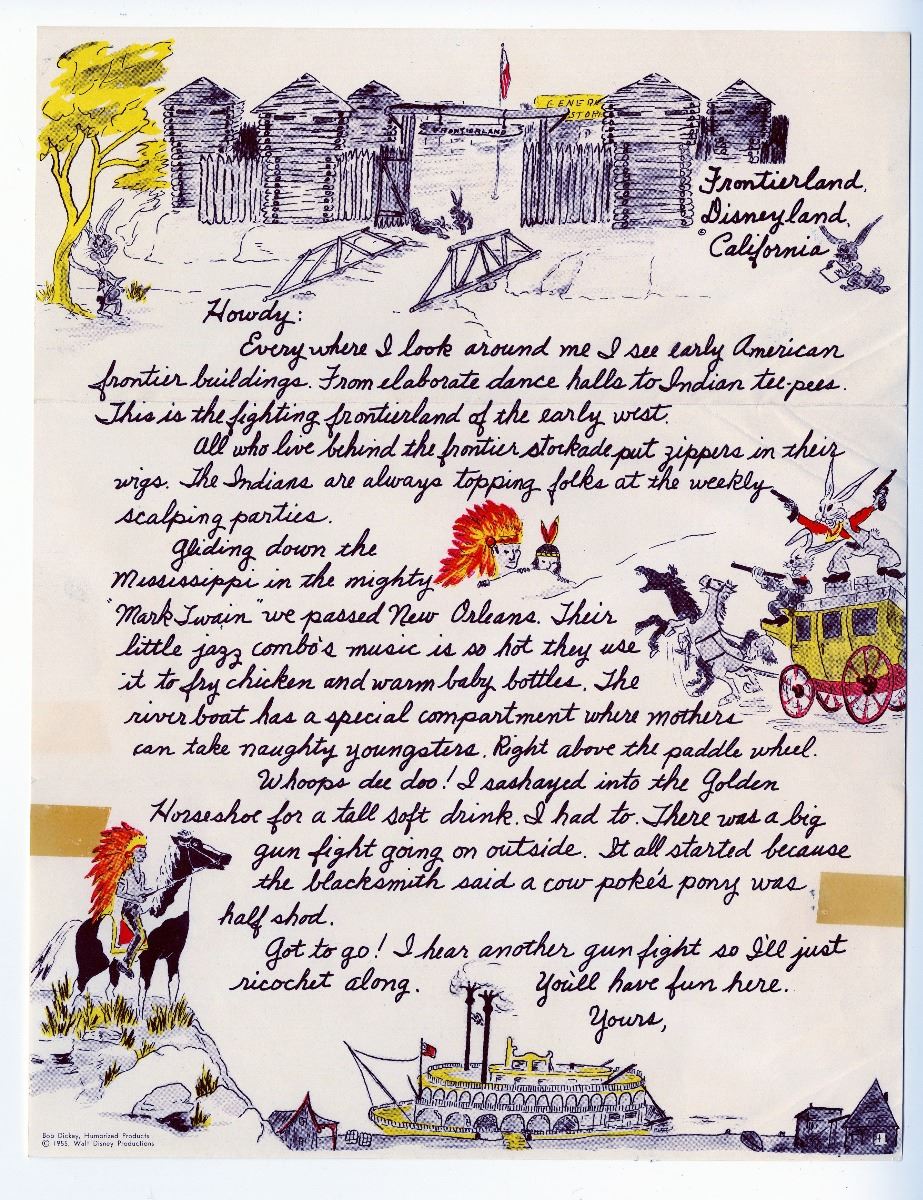 GENERAL
STORE
FRONTIERLAND
Frontierland,
Disneyland,
© California
Howdy:
Everywhere I look around me I see early American
frontier buildings. From elaborate dance halls to Indian tee-pees.
This is the fighting frontierland of the early west.
All who live behind the frontier stockade put zippers in their
wigs. The Indians are always topping folks at the weekly
scalping parties.
Gliding down the
Mississippi in the mighty
"Mark Twain" we passed New Orleans. Their
little jazz combo's music is so hot they use
it to fry chicken and warm baby bottles. The
river boat has a special compartment where mothers
can take naughty youngsters. Right above the paddle wheel.
Whoops dee doo! I sashayed into the Golden
Horseshoe for a tall soft drink. I had to. There was a big
gun fight going on outside. It all started because
the blacksmith said a cow poke's pony was
half shod.
Got to go! I hear another gun fight so I'll just
ricochet along. You'll have fun here.
Yours,
Bob Dickey, Humorized Products
© 1955, Walt Disney Productions
4